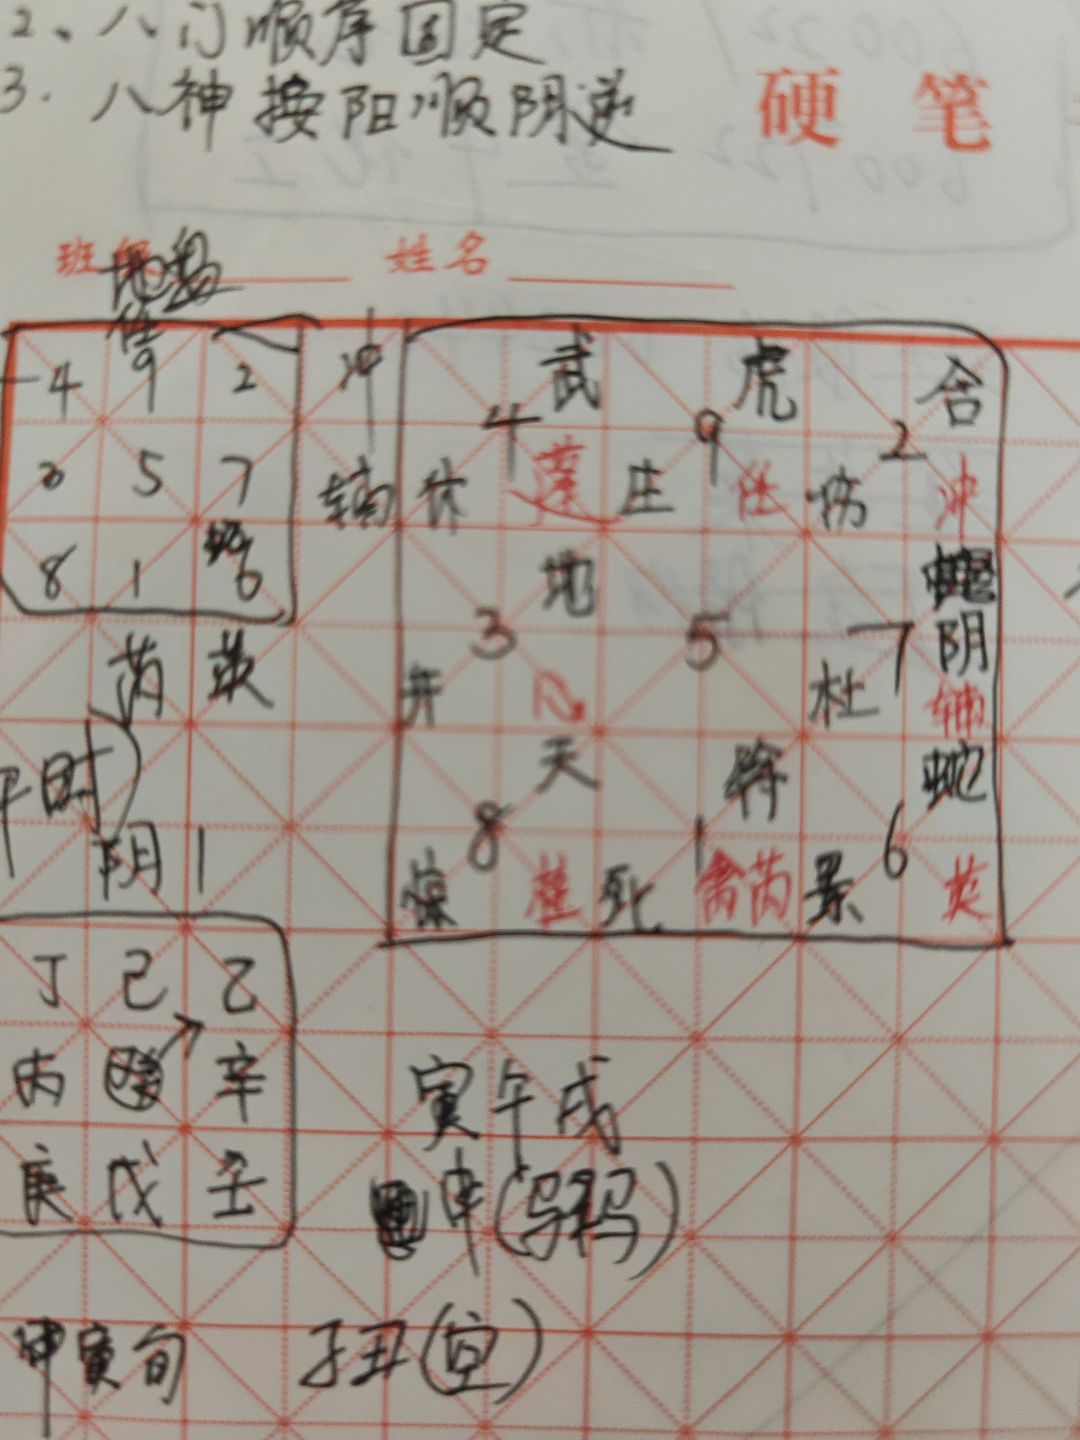 2、八门顺序固定
3. 八神按阳顺阴逆
硬 笔
班 地盘
姓名
4 9 2
3 5 7
8 1 6
冲
辅
武 虎 合
4 9 2
休 蓬 庄 任 伤 冲
地
3 5 7 阴
开 杜 辅
天 蛇
8 1 6
惊 柱 死 禽芮 景 英
芮 英
午时
阴 1
丁 己 乙
丙 辛
庚 戊 壬
寅午戌
申(马)
甲寅旬 子丑(空)